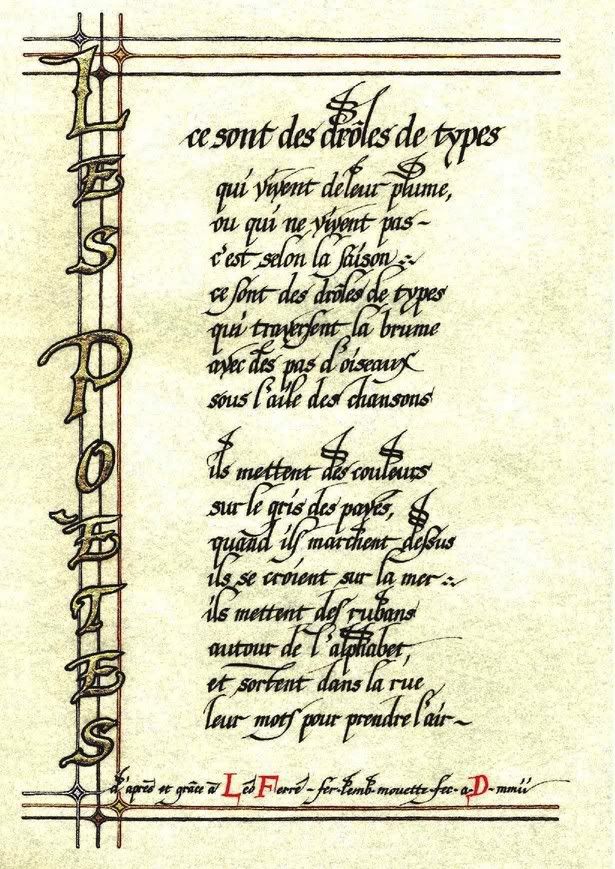 LES POÈTES
ce sont des drôles de types
qui vivent de leur plume,
ou qui ne vivent pas~
c'est selon la saison
ce sont des drôles de types
qui traversent la brume
avec des pas d'oiseaux
sous l'aile des chansons
ils mettent des couleurs
sur le gris des pavés,
quand ils marchent dessus
ils se croient sur la mer
ils mettent des rubans
autour de l'alphabet,
et sortent dans la rue
leur mots pour prendre l'air~
d'après et grâce à Léo Ferré ~ mouette fec. a.D. mmii